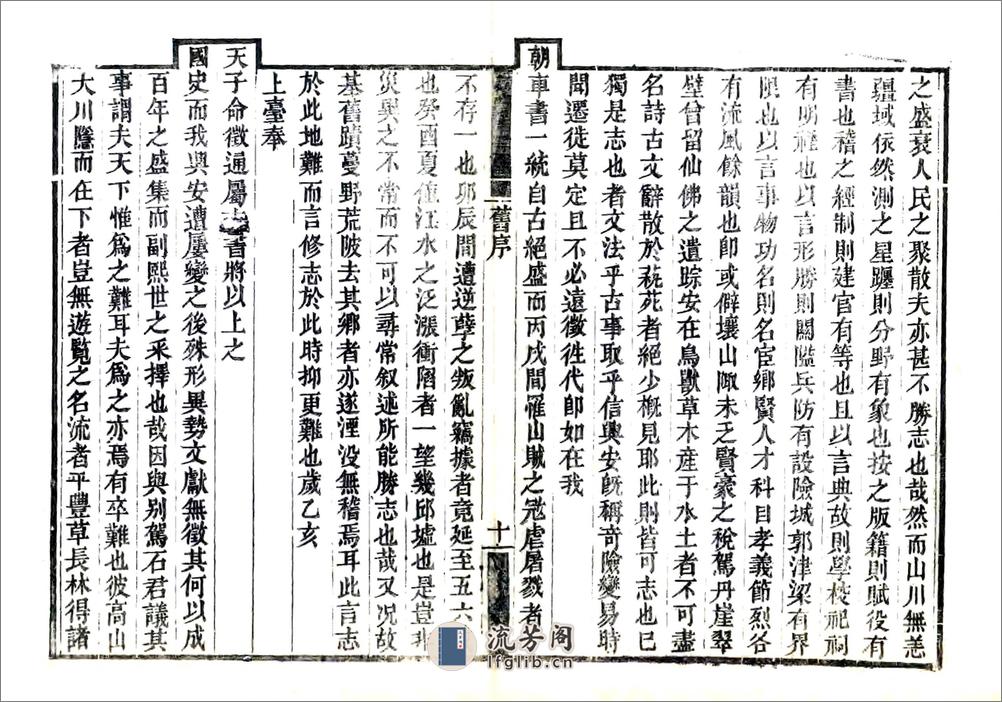 之盛衰人民之聚散夫亦甚不勝志也哉然而山川無恙
疆域依然測之星躔則分野有象也按之版籍則賦役有
書也稽之經制則建官有等也且以言典故則學校祀祠
有明禋也以言形勝則關隘兵防有設險城郭津梁有界
限也以言事物功名則名宦鄉賢人才科目孝義節烈各
有流風餘韻也卽或僻壤山陬未乏賢豪之稅駕丹崖翠
壁曾留仙佛之遺踪安在鳥獸草木産于水土者不可盡
名詩古文辭散於蓺苑者絕少槪見耶此則皆可志也已
獨是志也者文法乎古事取乎信興安旣稱竒險變易時
聞遷徙莫定且不必遠徵徃代卽如在我
朝車書一統自古絕盛而丙戌間罹山賊之冦虐屠戮者
舊序
十
不存一也卯辰間遭逆孽之叛亂竊據者竟延至五六
也癸酉夏值江水之泛漲衝陷者一望幾邱墟也是豈非
災異之不常而不可以尋常叙述所能勝志也哉又况故
基舊蹟蔓野荒陂去其鄉者亦遂湮没無稽焉耳此言志
於此地難而言修志於此時抑更難也歲乙亥
上臺奉
天子命徵通屬 書將以上之
國史而我興安遭屢變之後殊形異勢文獻無徵其何以成
百年之盛集而副熙世之采擇也哉因與别駕石君議其
事謂夫天下惟爲之難耳夫爲之亦焉有卒難也彼高山
大川隱而在下者豈無遊覧之名流者乎豐草長林得諸
流芳阁
lfglib.cn